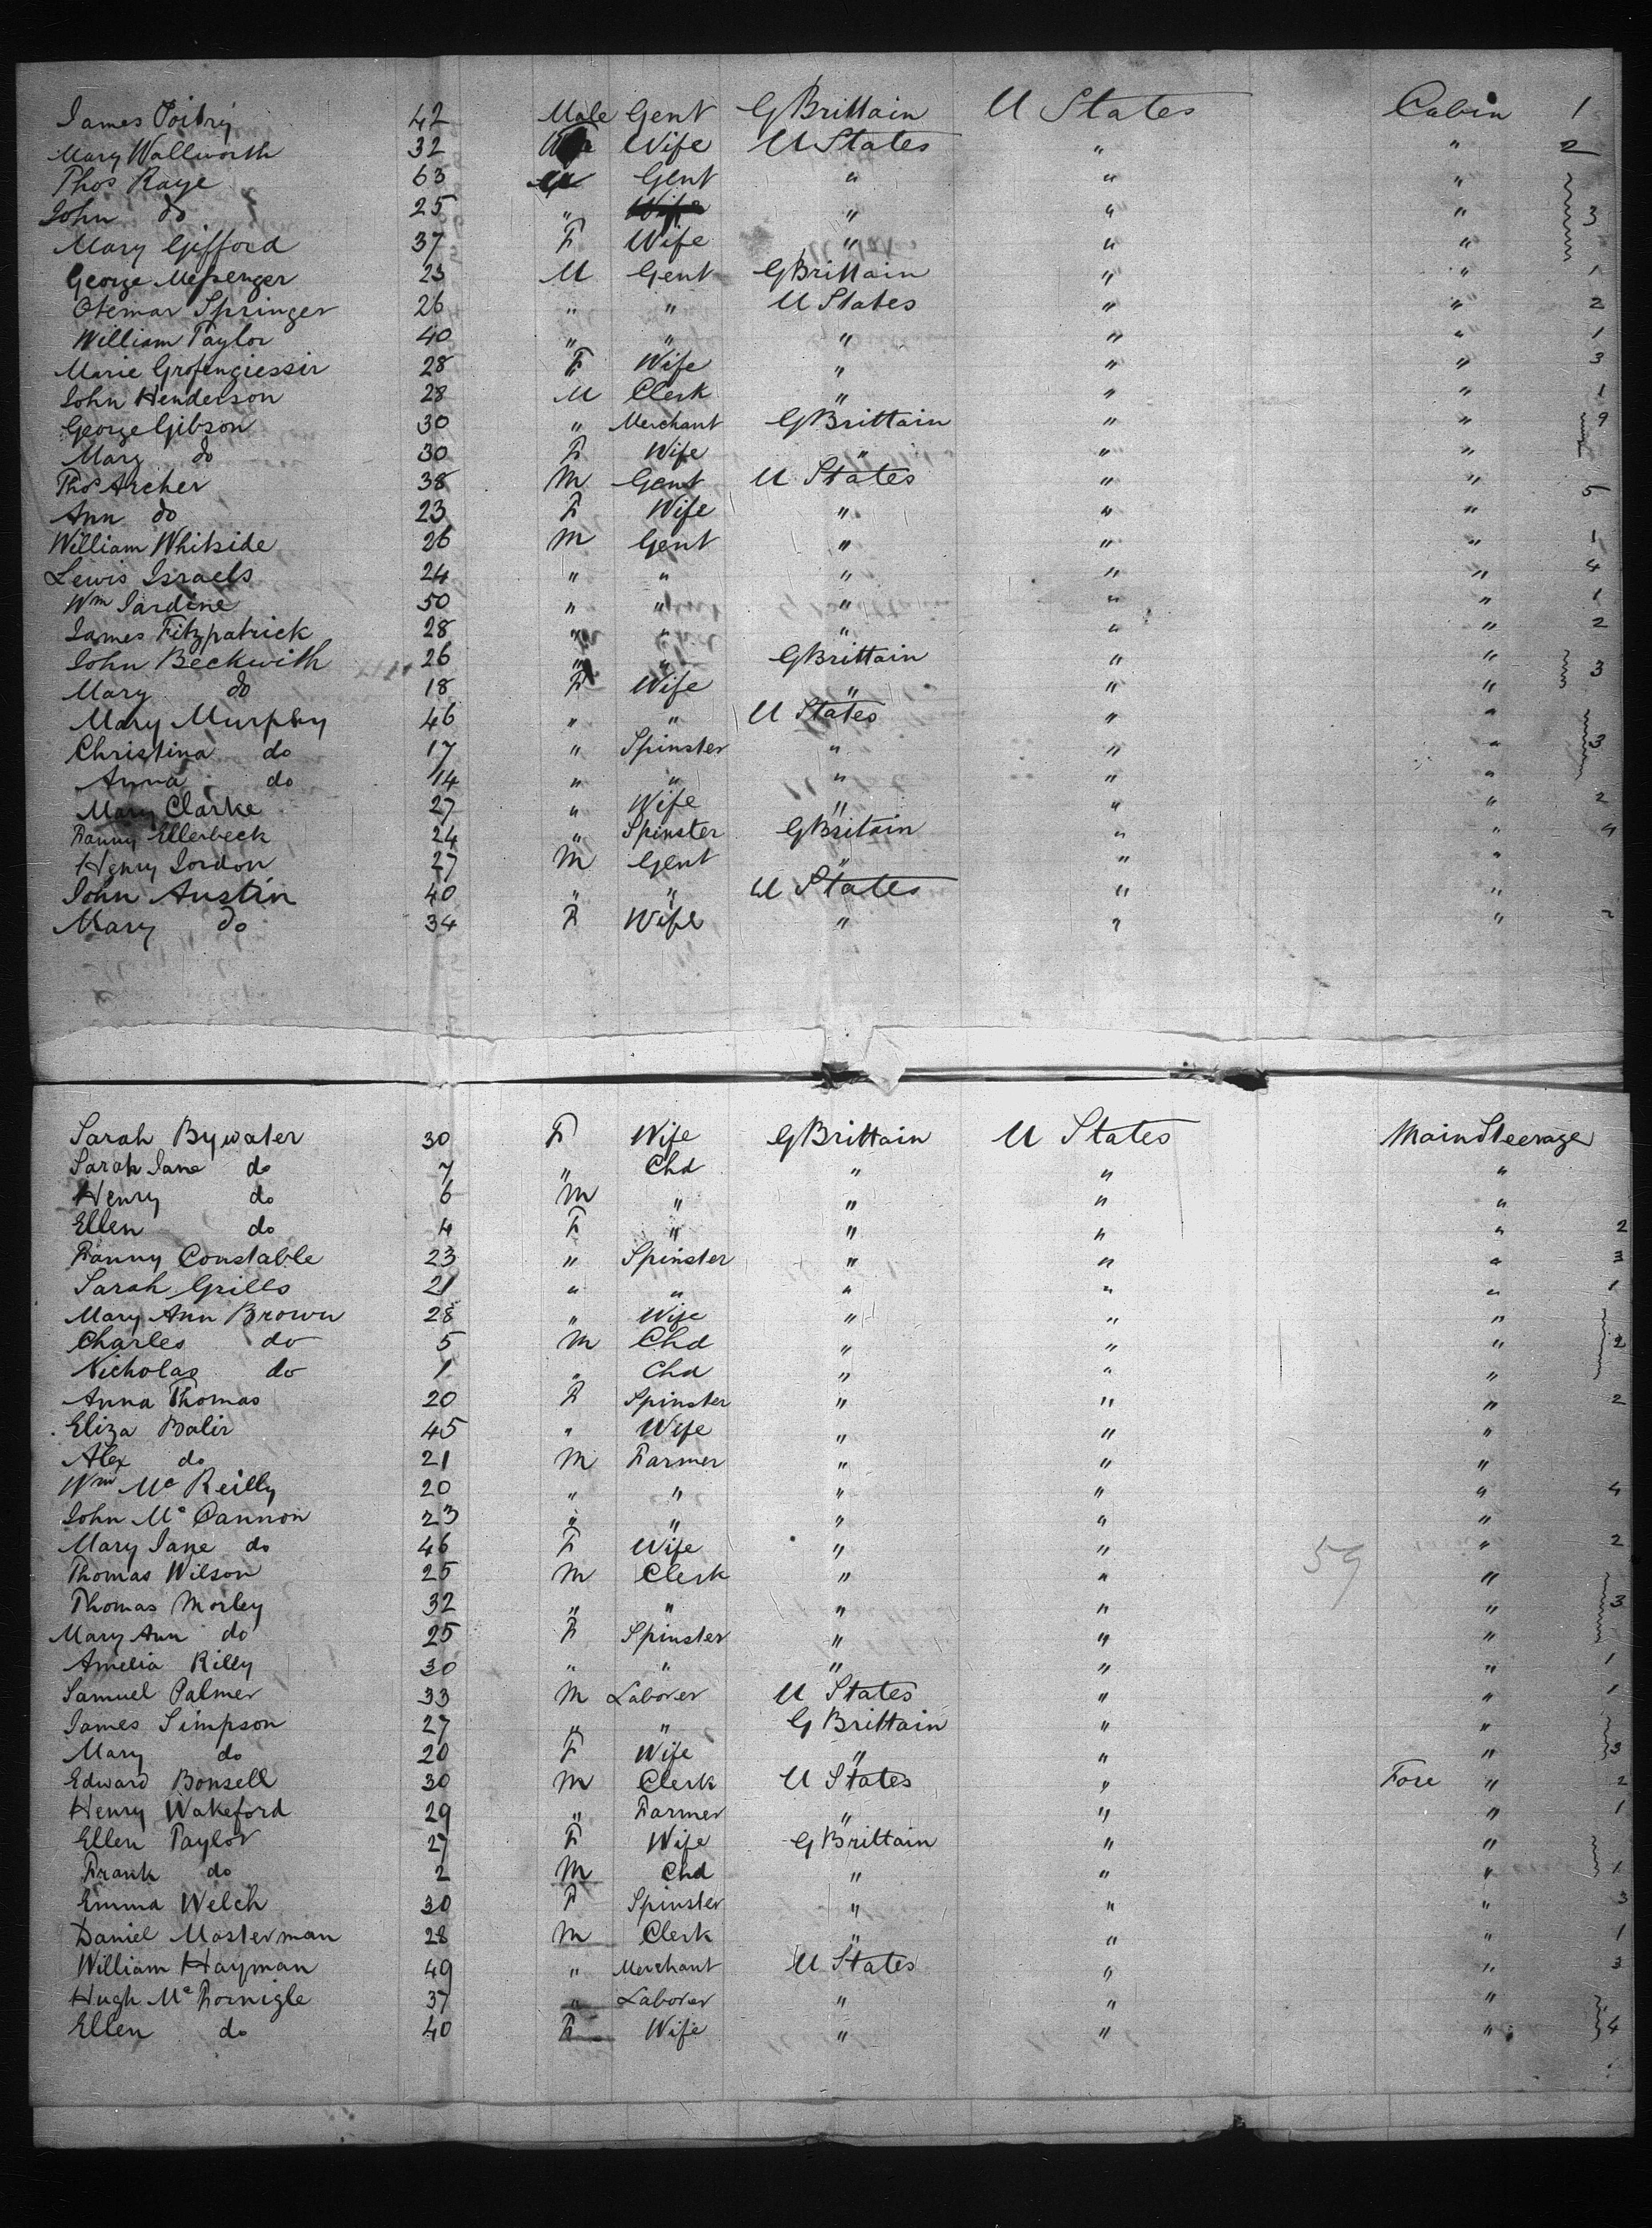 James Poitry 42 Male Gent G Brittain U States Cabin 1
Mary Wallworth 32 Wife U States " " 2
Thos Raye 63 M Gent " " "
John do 25 " " " " 3
Mary Gifford 37 F Wife " " "
George Messenger 23 M Gent G Brittain " " 1
Otemar Springer 26 " " U States " " 2
William Taylor 40 " " " " " 1
Marie Grossengiessir 28 F Wife " " " 3
John Henderson 28 M Clerk " " " 1
George Gibson 30 " Merchant G Brittain " " 9
Mary do 30 F Wife " " "
Thos Archer 38 M Gent U States " "
Ann do 23 F Wife " " " 5
William Whitside 26 M Gent " " " 1
Lewis Israels 24 " " " " " 4
Wm Jardine 50 " " " " " 1
James Fitzpatrick 28 " " " " " 2
John Beckwith 26 " " G Brittain " " 3
Mary do 18 F Wife " " "
Mary Murphy 46 " " U States " "
Christina do 17 " Spinster " " " 3
Anna do 14 " " " " "
Mary Clarke 27 " Wife " " " 2
Fanny Ellerbeck 24 " Spinster G Britain " " 4
Henry Jordon 27 M Gent " " "
John Austin 40 " " U States " "
Mary do 34 F Wife " " " 2
Sarah Bywater 30 F Wife G Brittain U States Main Steerage
Sarah Jane do 7 " Chd " " "
Henry do 6 M " " " "
Ellen do 4 F " " " " 2
Fanny Constable 23 " Spinster " " " 3
Sarah Grills 21 " " " " " 1
Mary Ann Brown 28 " Wife " " "
Charles do 5 M Chd " " " 2
Nicholas do 1 " Chd " " "
Anna Thomas 20 F Spinster " " " 2
Eliza Balir 45 " Wife " " "
Alex do 21 M Farmer " " "
Wm Mc Reilly 20 " " " " " 4
John Mc Cannon 23 " " " " "
Mary Jane do 46 F Wife " " " 2
Thomas Wilson 25 M Clerk " " 59 "
Thomas Morley 32 " " " " " 3
Mary Ann do 25 F Spinster " " "
Amelia Rilly 30 " " " " " 1
Samuel Palmer 33 M Laborer U States " " 1
James Simpson 27 " " G Brittain " "
Mary do 20 F Wife " " " 3
Edward Bonsell 30 M Clerk U States " Fore " 2
Henry Wakeford 29 " Farmer " " " 1
Ellen Taylor 27 F Wife G Brittain " "
Frank do 2 M Chd " " " 1
Emma Welch 30 F Spinster " " " 3
Daniel Masterman 28 M Clerk " " " 1
William Hayman 49 " Merchant U States " " 3
Hugh Mc Fornigle 37 " Laborer " " "
Ellen do 40 F Wife " " " 4